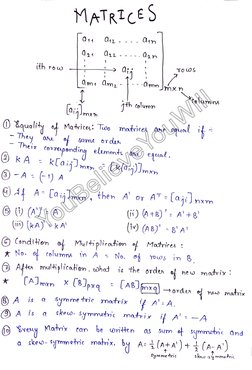 MATRICES
a11 a12 ..... a1n
a21 a22 ..... a2n
ith row aij rows
am1 am2 ... amn m×n
[aij]m×n jth column columns
① Equality of Matrices: Two matrices are equal if :-
- They are of same order
- Their corresponding elements are equal.
② kA = k[aij]m×n = [k(aij)]m×n
③ -A = (-1) A
④ If A = [aij]m×n, then A' or Aᵀ = [aji]n×m
⑤ (i) (A')' = A (ii) (A+B)' = A'+B'
(iii) (kA)' = kA' (iv) (AB)' = B'A'
⑥ Condition of Multiplication of Matrices :
★ No. of columns in A = No. of rows in B.
⑦ After multiplication, what is the order of new matrix :
★ [A]m×n × [B]p×q = [AB]m×q → order of new matrix
⑧ A is a symmetric matrix if A' = A.
⑨ A is a skew-symmetric matrix if A' = -A
⑩ Every Matrix can be written as sum of symmetric and
a skew-symmetric matrix. by A = ½(A+A') + ½(A-A')
Symmetric Skew symmetric
YouBelieveYouWill